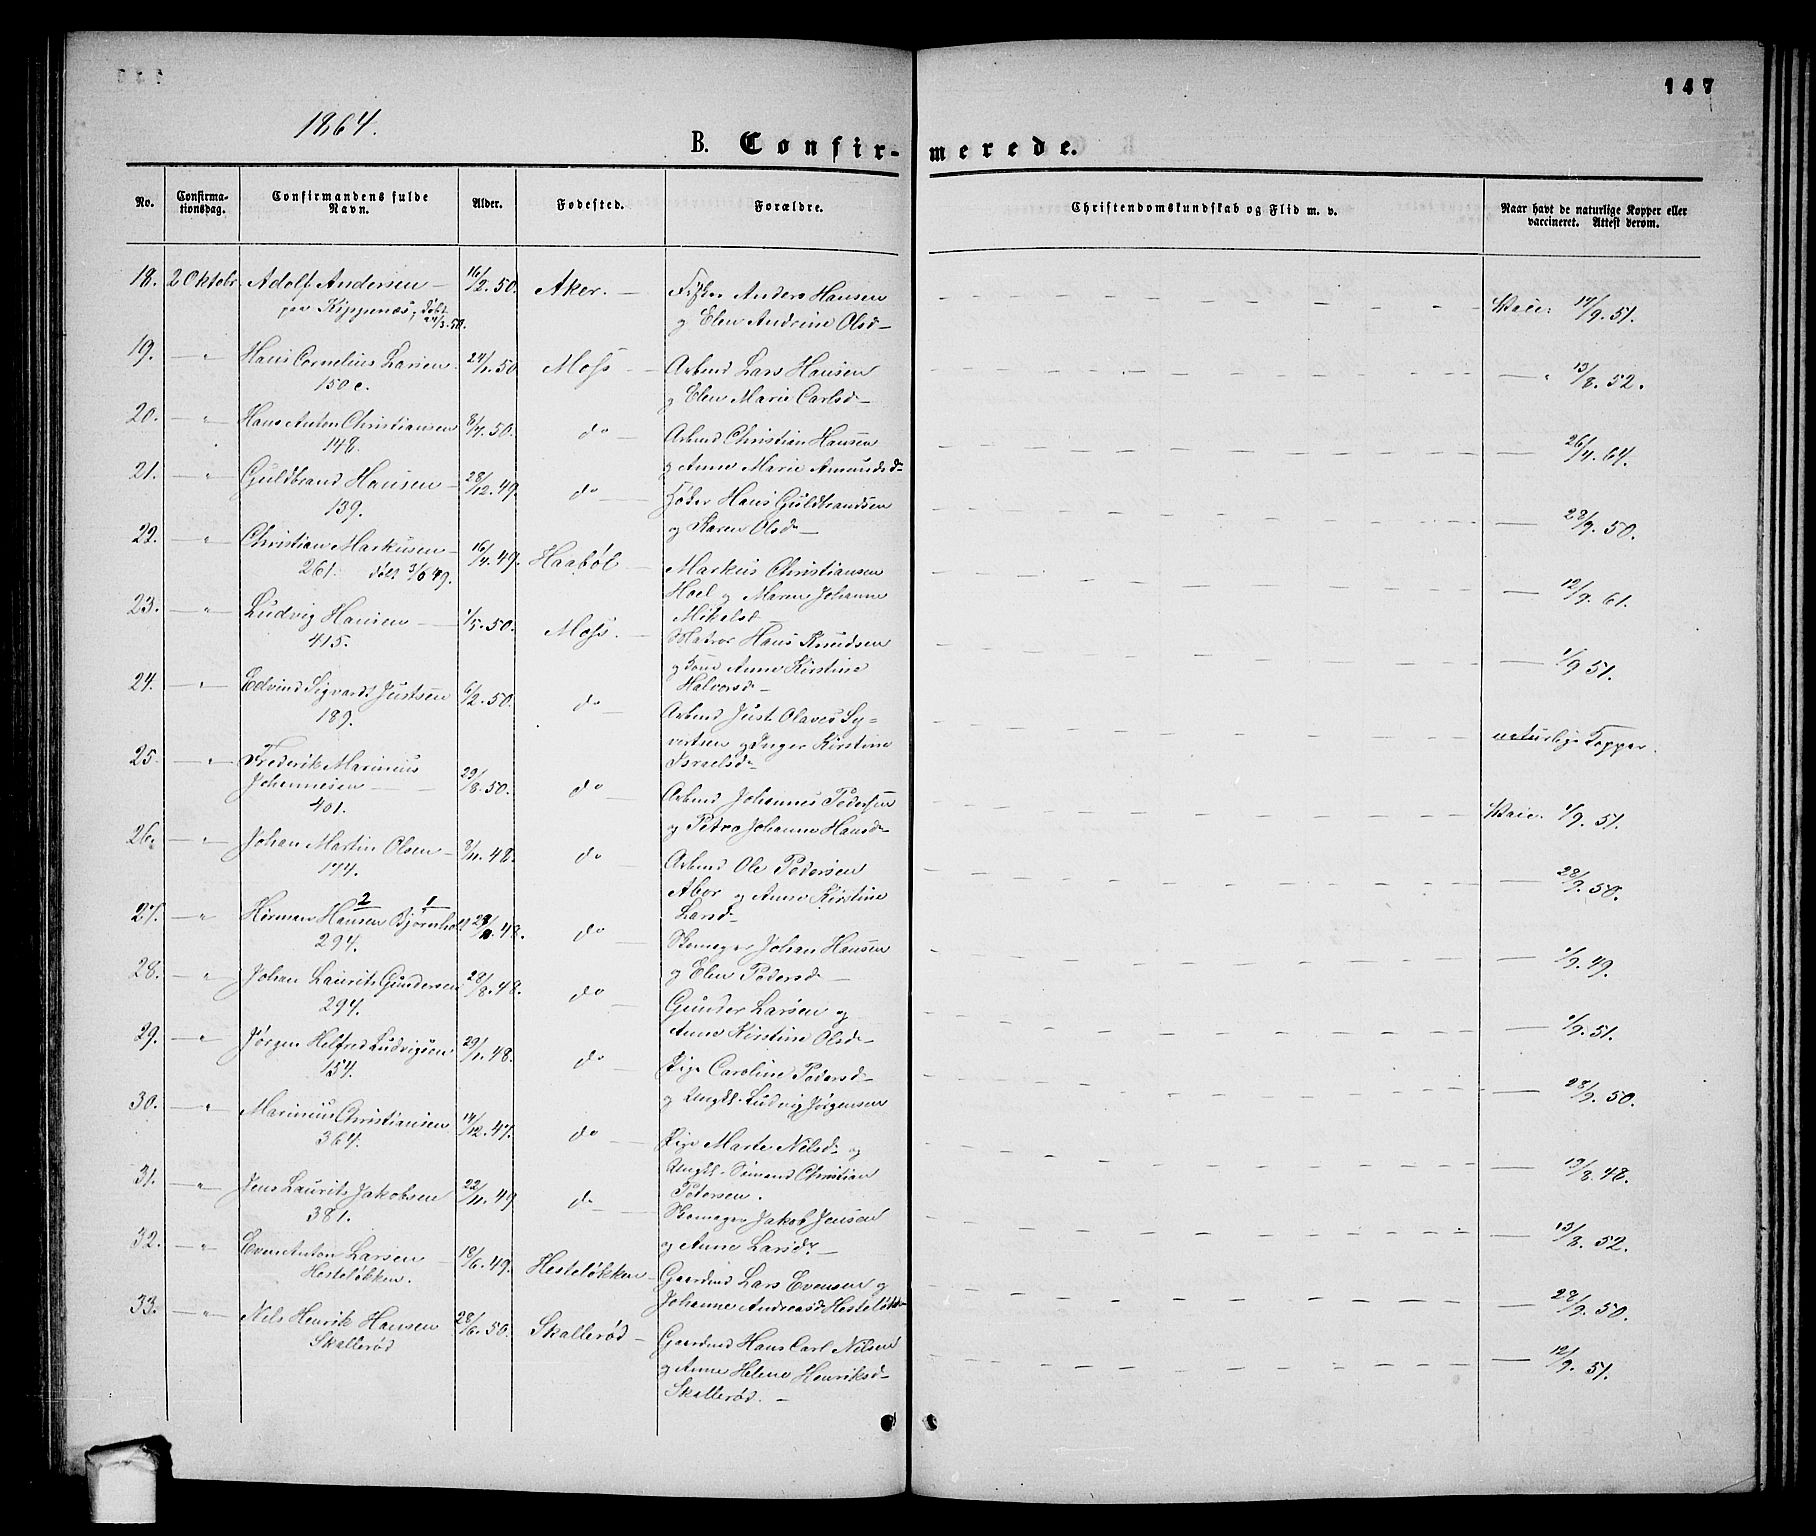 147
1864.
B. Confir-merede.
No. Confirma-tionsdag. Confirmandens fulde Navn. Alder. Fødested. Forældre. Christendomskundskab og Flid m. v. Naar havt de naturlige Kopper eller vaccineret. Attest derom.
18. 2 Oktobr. Adolf Andersen — 16/2.50. Aker. — Anders Hansen
paa Kippenæs, døbt 24/3.50. og Elen Andrine Olsd — Vaic: 17/9.51.
19. — " Hans Cornelius Larsen 24/1.50 Moss — Arbmd Lars Hansen
150 c. og Elen Marie Carlsd — — " 13/8.52.
20. — " Hans Anton Christiansen 8/7.50. do — Arbmd Christian Hansen
148. og Anne Marie Amundsd — 26/4.64.
21. — " Guldbrand Hansen — 28/12.49. do — Hans Guldbrandsen
139. og Karen Olsd — — 28/9.50.
22. — " Christian Markusen — 16/4.49. Haabøl — Markus Christiansen
261. døbt 3/6 49. Hoel og Maren Johanne
Mikelsd — — 12/9.61.
23. — " Ludvig Hansen — 1/5.50. Moss. — Matros Hans Knudsen
415. og Kone Anne Kirstine
Halvorsd — — 1/9.51.
24. — " Edvind Sigvardt Justsen 6/2.50. do — Arbmd Just Olaves Sy-
189. vertsen og Inger Kirstine
Israelsd — naturlige Kopper.
25. — " Fredrik Marinius
Johannesen — 29/8.50. do — Arbmd Johannes Pedersen
401. og Petra Johanne Hansd — Vaic: 1/9.51.
26. — " Johan Martin Olsen — 8/11.48. do — Arbmd Ole Pedersen
174. Aber og Anne Kirstine
Larsd — — 28/9.50.
27. — " 2 1
Herman Hansen Bjørnholt 48. do — Skomager Johan Hansen
294. og Elen Pedersd — — 1/9.49.
28. — " Johan Laurits Gundersen 28/8.48. do — Gunder Larsen og
294. Anne Kirstine Olsd — — 1/9.51.
29. — " Jørgen Helfred Ludvigsen 29/1.48. do — Pige Caroline Pedersd —
154. og Ungk. Ludvig Jørgensen — 28/9.50.
30. — " Marinius Christiansen 14/12.47. do — Pige Marte Nilsd og
364. Ungk. Sømand Christian
Petersen. — 19/8.48.
31. — " Jens Laurits Jakobsen 22/11.49 do — Skomager Jakob Jensen
381. og Anne Larsdr — — 13/8.52.
32. — " Even Anton Larsen — 18/6.49. Hesteløkken — Gaardmd Lars Evensen og
Hesteløkken. Johanne Andreasd Hesteløkk — 28/9.50.
33. — " Nils Henrik Hansen 28/6.50. Skallerød — Gaardmd Hans Carl Nilsen
Skallerød og Anne Helene Henriksd — — 12/9.51.
Skallerød. —